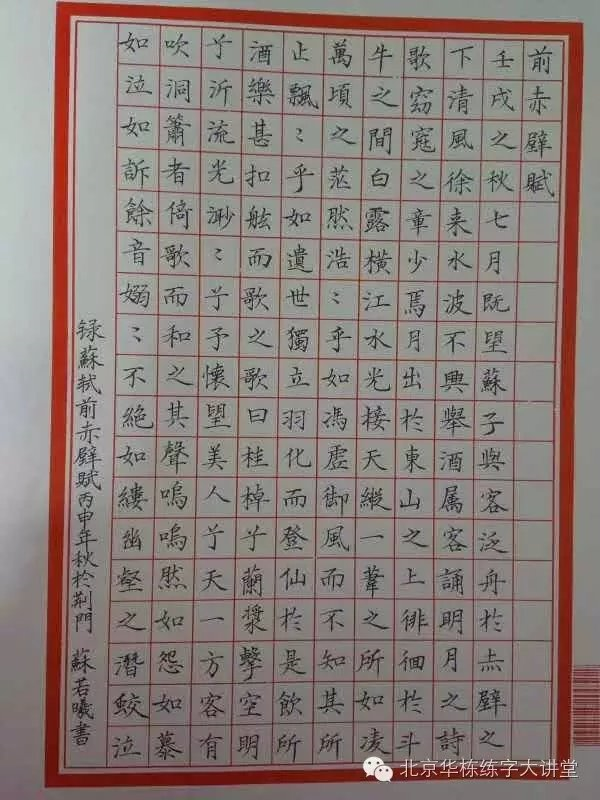 前赤壁賦
壬戌之秋七月既望蘇子與客泛舟於赤壁之
下清風徐来水波不興舉酒属客誦明月之詩
歌窈窕之章少焉月出於東山之上徘徊於斗
牛之間白露橫江水光接天縱一葦之所如凌
萬頃之茫然浩〻乎如馮虛御風而不知其所
止飄〻乎如遺世獨立羽化而登仙於是飲所
酒樂甚扣舷而歌之歌曰桂棹兮蘭槳擊空明
兮沂流光渺〻兮予懷望美人兮天一方客有
吹洞簫者倚歌而和之其聲嗚嗚然如怨如慕
如泣如訴餘音嫋〻不絕如縷幽壑之潛蛟泣
録蘇軾前赤壁賦丙申年秋於荊門 蘇若曦書
北京华栋练字大讲堂